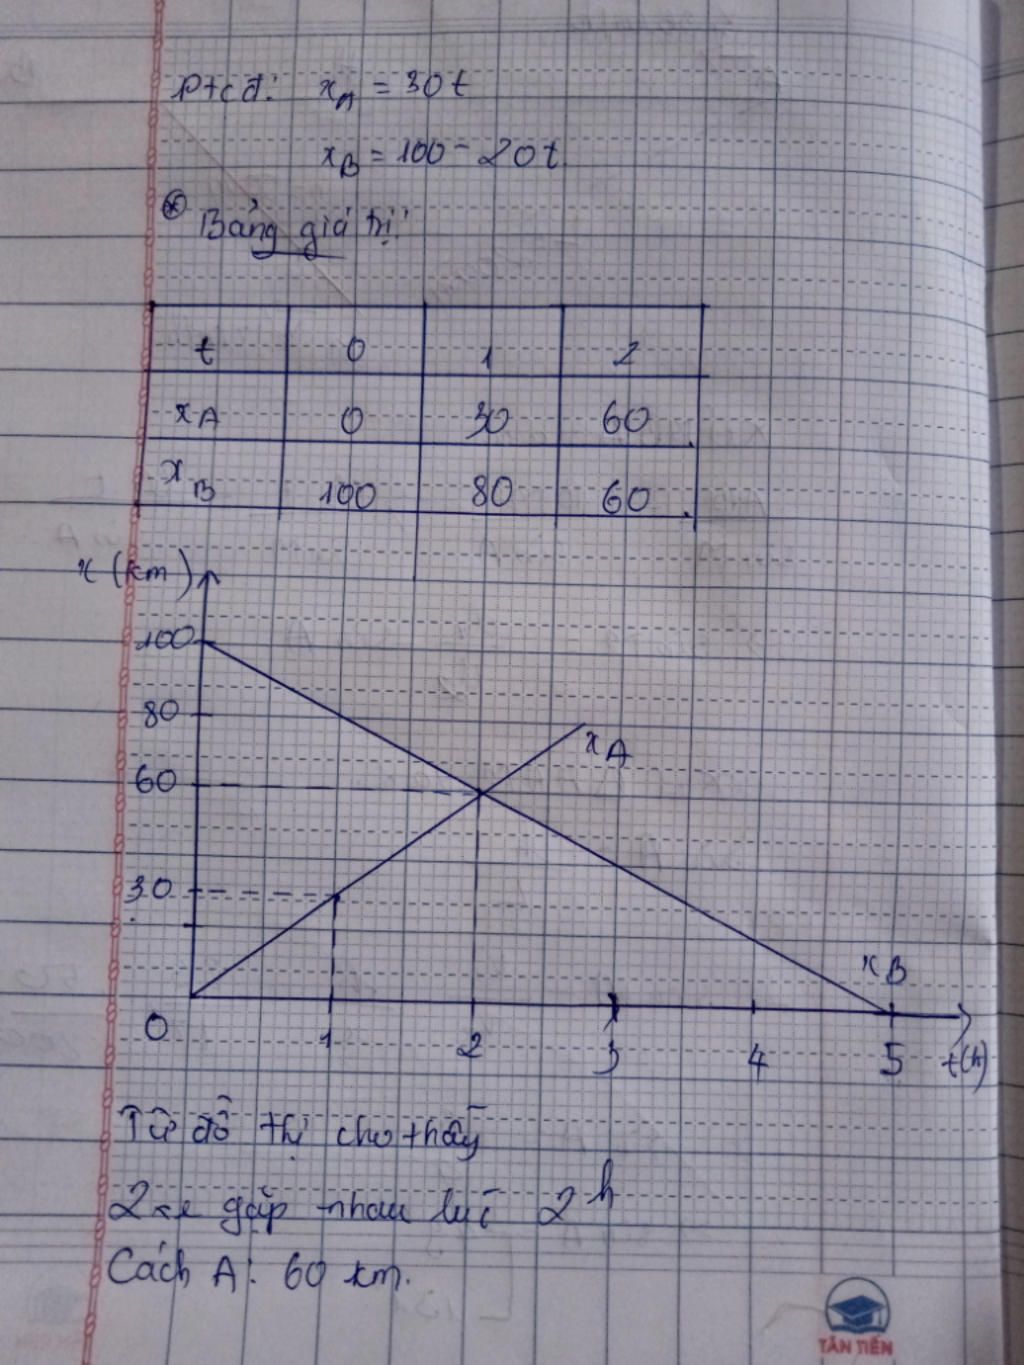 Ptcđ: xA = 30t
xB = 100 - 20t
* Bảng giá trị:
t 0 1 2
xA 0 30 60
xB 100 80 60
x (km)
100
80
xA
60
30
xB
0 1 2 3 4 5 t(h)
Từ đồ thị cho thấy
2 xe gặp nhau lúc 2h
Cách A: 60 km.
TÂN TIẾN